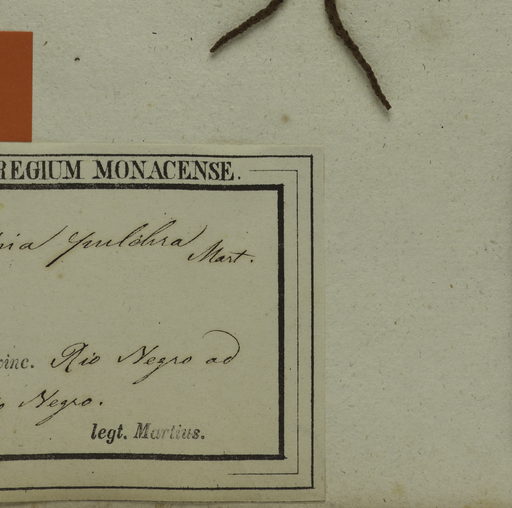 REGIUM MONACENSE.
pulchra Mart.
inc. Rio Negro ad
Negro.
legt. Martius.